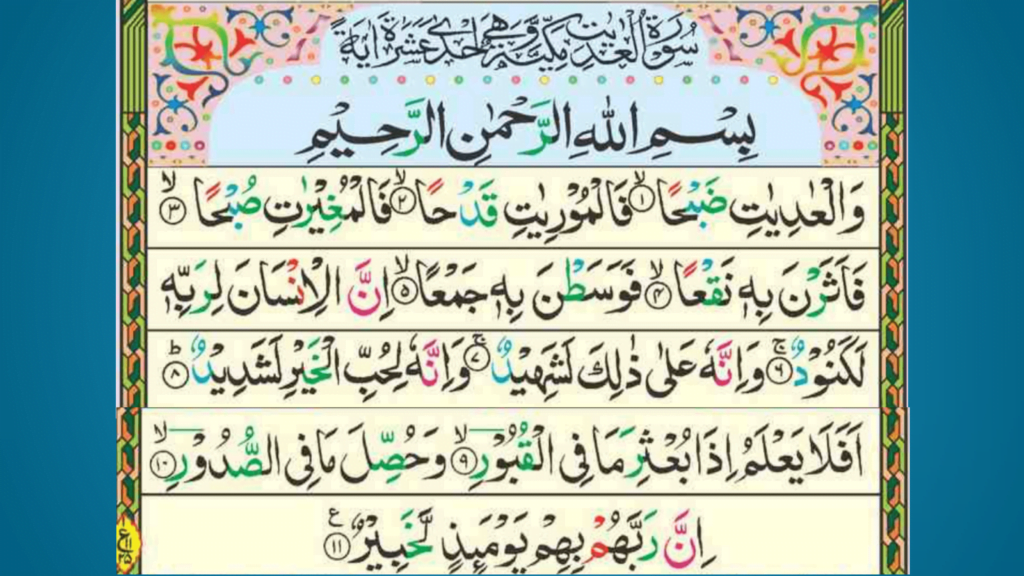 سُوْرَةُ الْعٰدِيٰتِ مَكِّيَّةٌ وَّهِيَ اِحْدٰى عَشْرَةَ اٰيَةً
بِسْمِ اللّٰهِ الرَّحْمٰنِ الرَّحِيْمِ
وَالْعٰدِيٰتِ ضَبْحًا ۙ﴿۱﴾ فَالْمُوْرِيٰتِ قَدْحًا ۙ﴿۲﴾ فَالْمُغِيْرٰتِ صُبْحًا ۙ﴿۳﴾
فَاَثَرْنَ بِهٖ نَقْعًا ۙ﴿۴﴾ فَوَسَطْنَ بِهٖ جَمْعًا ۙ﴿۵﴾ اِنَّ الْاِنْسَانَ لِرَبِّهٖ
لَكَنُوْدٌ ۚ﴿۶﴾ وَاِنَّهٗ عَلٰى ذٰلِكَ لَشَهِيْدٌ ۚ﴿۷﴾ وَاِنَّهٗ لِحُبِّ الْخَيْرِ لَشَدِيْدٌ ؕ﴿۸﴾
اَفَلَا يَعْلَمُ اِذَا بُعْثِرَ مَا فِى الْقُبُوْرِ ۙ﴿۹﴾ وَحُصِّلَ مَا فِى الصُّدُوْرِ ۙ﴿۱۰﴾
اِنَّ رَبَّهُمْ بِهِمْ يَوْمَىِٕذٍ لَّخَبِيْرٌ ﴿۱۱﴾ ع